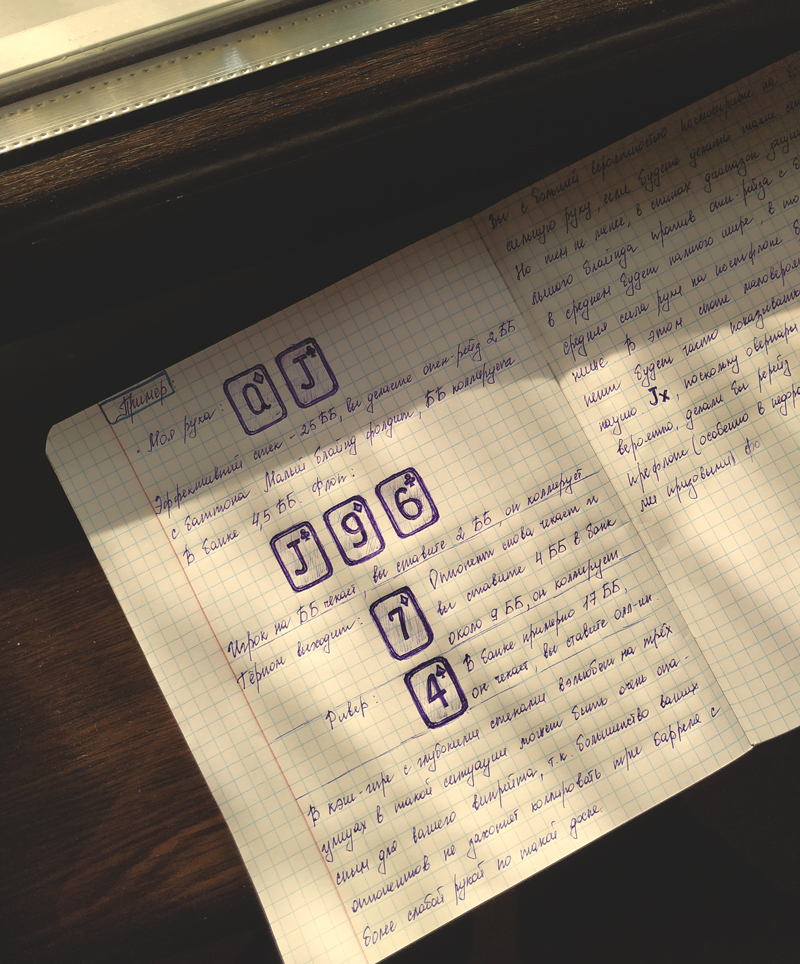 Пример:
• Моя рука: Q♦ J♣
Эффективный стек – 25 ББ, вы делаете опен-рейз 2 ББ
с баттона. Малый блайнд фолдит, ББ коллирует.
В банке 4,5 ББ. Флоп:
J 9♦ 6♣
Игрок на ББ чекает, вы ставите 2 ББ, он коллирует
Тёрном выходит: 7♦ Оппонент снова чекает и
вы ставите 4 ББ в банк
около 9 ББ, он коллирует
Ривер: 4 В банке примерно 17 ББ,
он чекает, вы ставите олл-ин
В кэш-игре с глубокими стеками вэльюбет на трёх
улицах в такой ситуации может быть очень опа-
сным для вашего винрейта, т.к. большинство ваших
оппонентов не захотят коллировать три барреля с
более слабой рукой по такой доске.
Вы с большей вероятностью на
сильную руку, если будете делать такие
Но тем не менее, в спинах диапазон защиты
льшого блайнда против опен-рейза с
в среднем будет намного шире, в то
средняя сила руки на постфлопе
ниже. В этом споте маловероятно
нент будет часто показывать
нашего Jx, поскольку оверпары
вероятно, делали бы ререйз
префлоп (особенно в недоро-
ми призовыми)